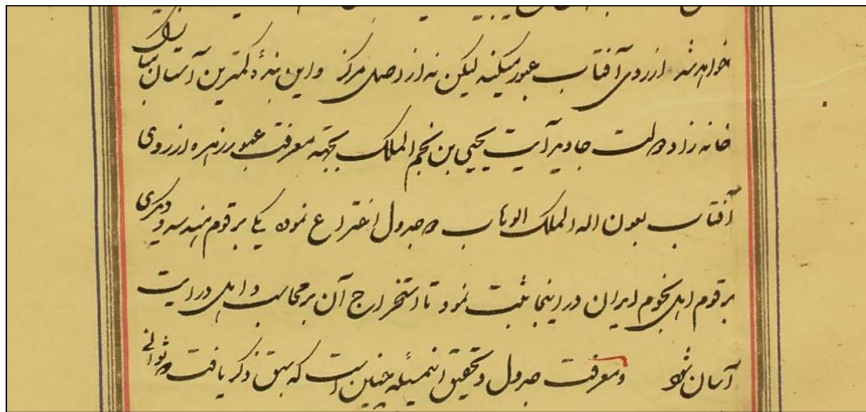 خواهد شد از روی آفتاب عبور میکند لیکن نه از وصل مرکز و این بندهٔ کمترین آستان مبارک
خانه زاد دولت جاوید آیت یحیی بن نجم الملک بجهته معرفت عبور زهره از روی
آفتاب بعون اله الملک الوهاب دو جدول اختراع نموده یکی برقوم هندسه و دیگری
برقوم اهل نجوم ایران در اینجا ثبت نمود تا استخراج آن بر محاسب و اهل درایت
آسان شود و معرفت جدول و تحقیق اینمسئله چنین است که سبق ذکر یافت